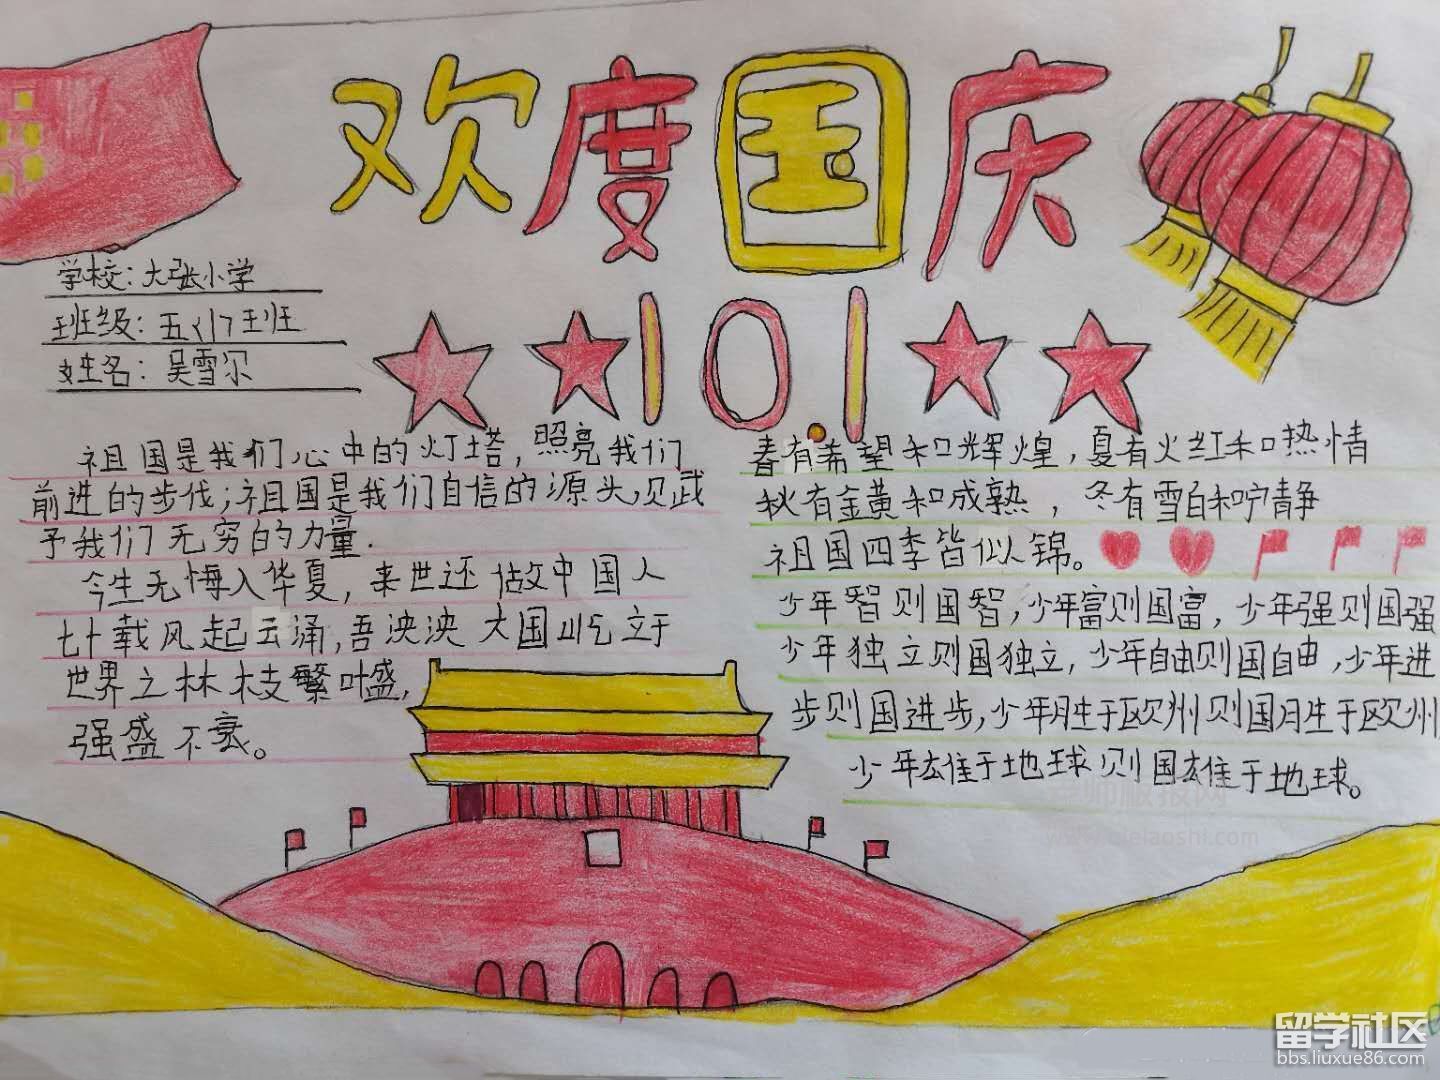 欢度国庆
学校：大张小学
班级：五(1)班
姓名：吴雪尔
10.1
祖国是我们心中的灯塔，照亮我们
前进的步伐；祖国是我们自信的源头，贝武
予我们无穷的力量.
今生无悔入华夏，来世还做中国人
七十载风起云涌，吾泱泱大国屹立于
世界之林枝繁叶盛，
强盛不衰。
春有希望和辉煌，夏有火红和热情
秋有金黄和成熟，冬有雪白和宁静
祖国四季皆似锦。
少年智则国智，少年富则国富，少年强则国强
少年独立则国独立，少年自由则国自由，少年进
步则国进步，少年胜于欧州则国胜于欧州
少年雄于地球则国雄于地球。
老师板报网
留学社区
bbs.liuxue86.com